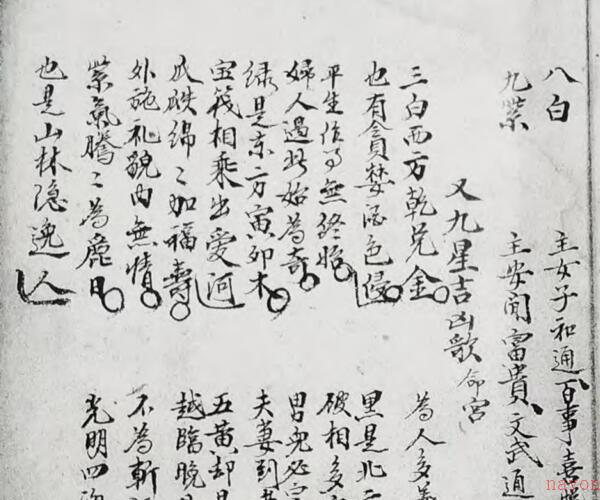 八白 主女子和通百事喜
九紫 主安閒富貴文武通
又九星吉凶歌 命宮
三白西方乾兌金 為人多義
也有貪婪酒色侵 黑是北
平生作事無終始 破相多
婦人遇此始為奇 男兒必
綠是東方寅卯木 夫妻到
宝筏相乘出愛河 五黃却是
瓜瓞綿々加福壽 越臨晚
外施礼貌內無情 不為斬
紫氣騰々為麗日 光明四
也是山林隱逸人